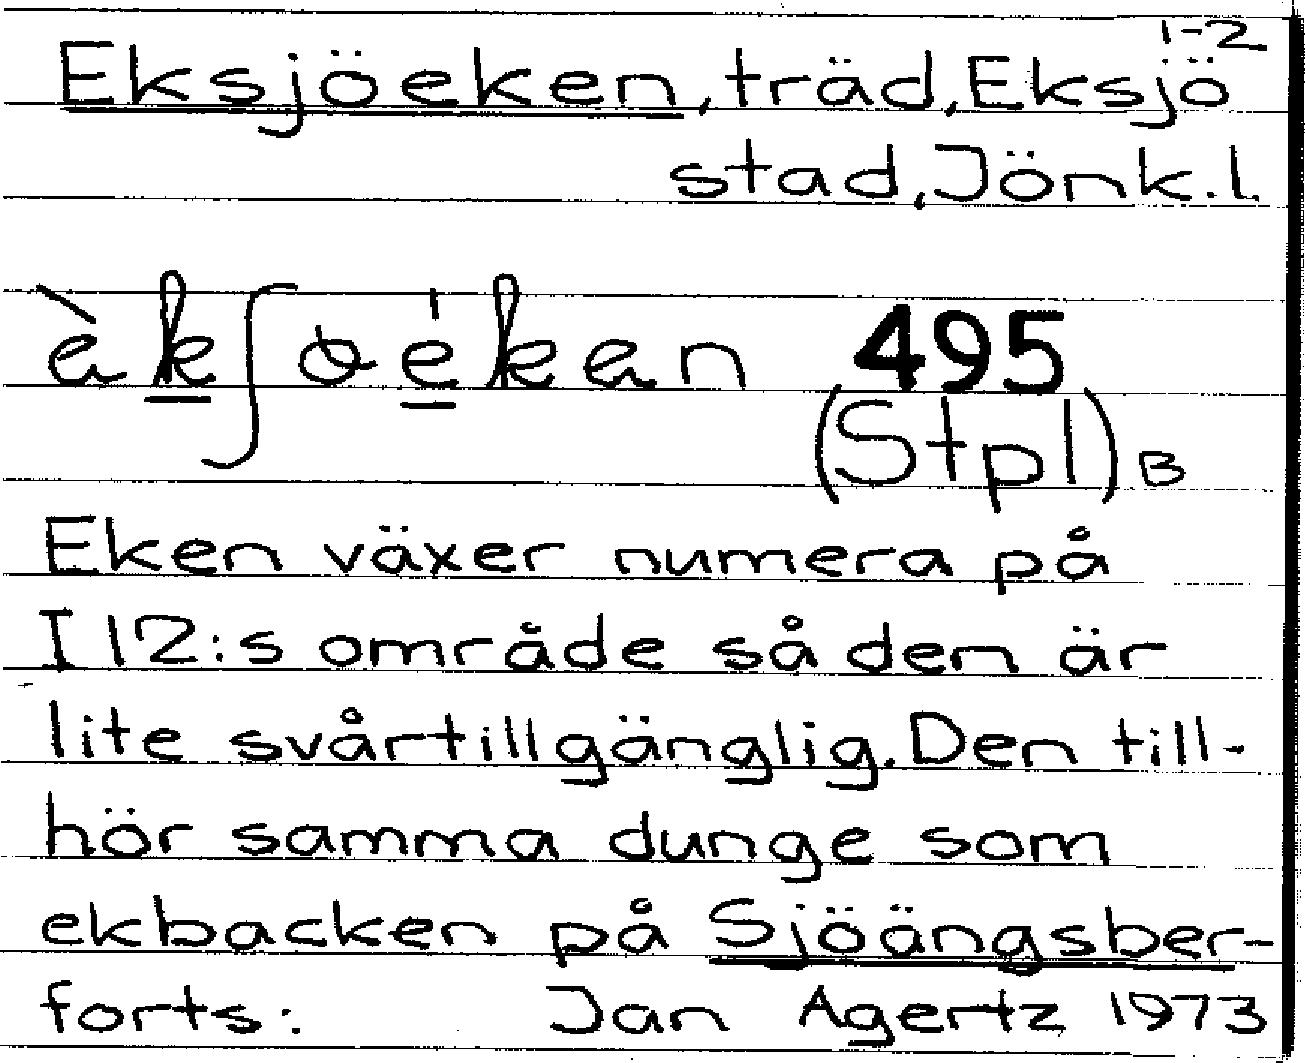 1-2
Eksjöeken, träd, Eksjö
stad, Jönk.l.
495
(Stpl)B
Eken växer numera på
I 12:s område så den är
lite svårtillgänglig. Den till-
hör samma dunge som
ekbacken på Sjöängsber-
forts: Jan Agertz 1973